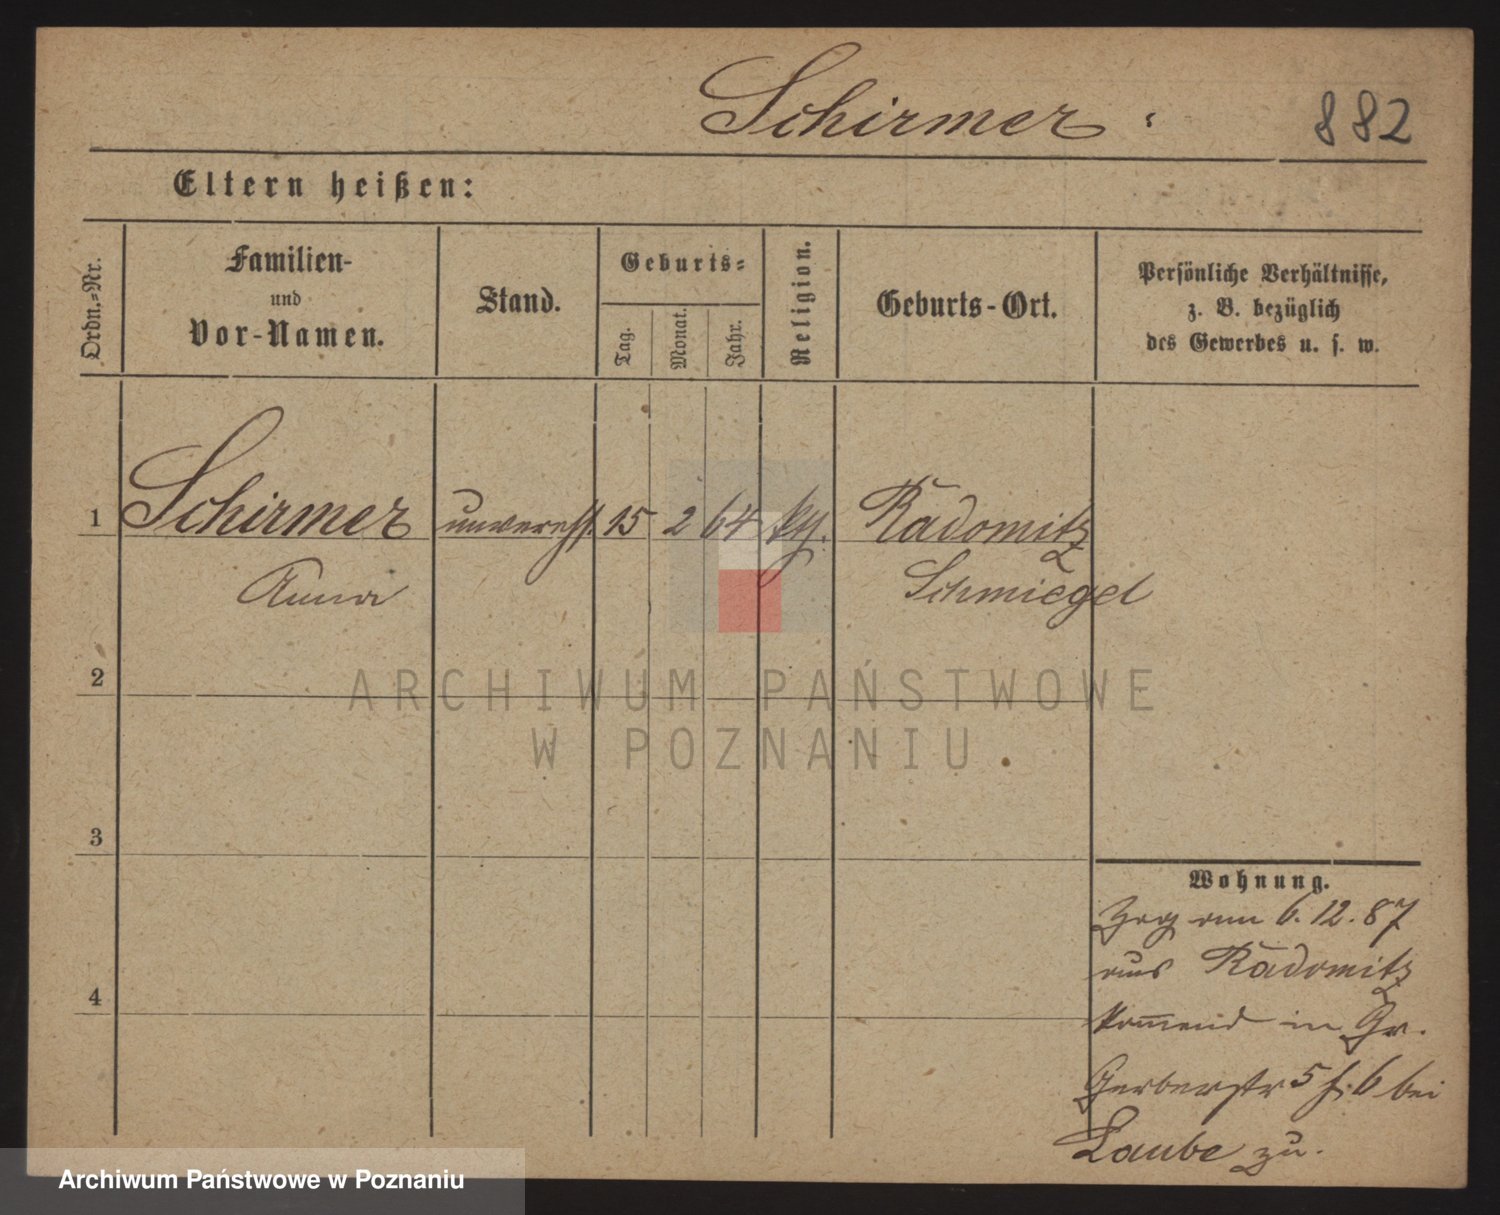 Schirmer.
882
Eltern heißen:
Ordn.=Nr.
Familien-
und
Vor-Namen.
Stand.
Geburts=
Tag.
Monat.
Jahr.
Religion.
Geburts-Ort.
Persönliche Verhältnisse,
z. B. bezüglich
des Gewerbes u. s. w.
1 Schirmer unvereh. 15 2 64 Radomitz
Anna Schmiegel
2
ARCHIWUM PAŃSTWOWE
W POZNANIU
3
Wohnung.
Zog am 6.12.87
aus Radomitz
4
kommend in Gr.
Gerberstr 5 6 bei
Laube zu.
Archiwum Państwowe w Poznaniu